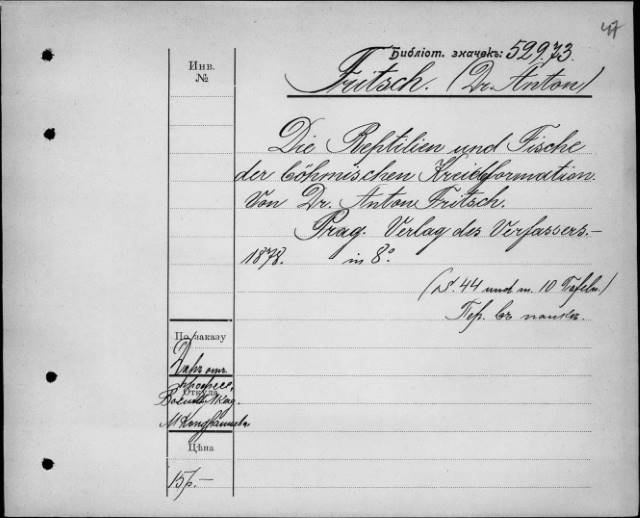 47
Библіот. значекъ: 529.73
Инв.
№
Fritsch. (Dr. Anton)
Die Reptilien und Fische
der böhmischen Kreideformation.
Von Dr. Anton Fritsch.
Prag. Verlag des Verfassers.-
1878. in 8°
(S. 44 und m. 10 Tafeln.)
Пер. въ папкѣ.
По заказу
Даръ отъ
Откуда
Цѣна
15р.-